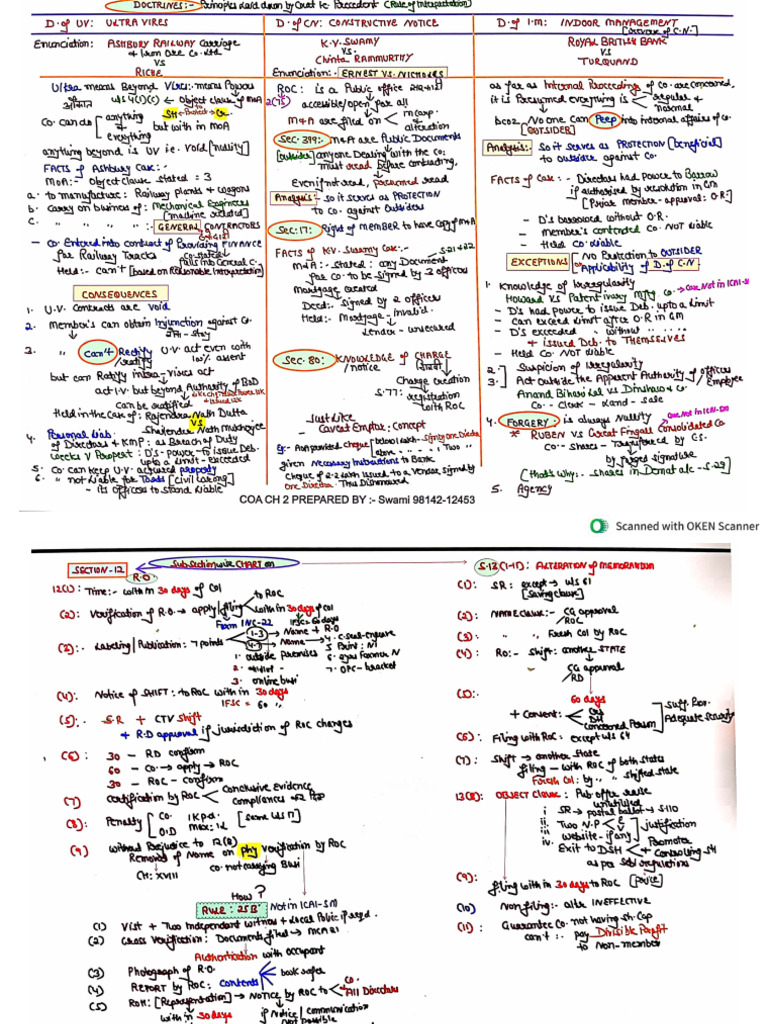 DOCTRINES:- Principles laid down by Court i.e. Precedent (Rule of Interpretation)
D. of UV: ULTRA VIRES
Enunciation: ASHBURY RAILWAY Carriage
& Iron Ore Co. Ltd
VS
RICHE
Ultra means Beyond Vires: means Powers
U/S 4(1)(c) ← Object clause of MoA
Co. can do anything & everything
but with in MoA
anything beyond is UV ie. Void [nullity]
FACTS of Ashbury Case:-
MoA:- Object Clause stated: 3
a. to manufacture: Railway plants & wagons
b. Carry on business of: Mechanical Engineers
[machine related]
c. " " " :- GENERAL CONTRACTORS
- Co. Entered into contract of Providing FINANCE
for Railway Tracks
Co. stated: falls into General C.
Held:- Can't [based on Reasonable Interpretation]
CONSEQUENCES
1. U.V. Contracts are void
2. Member's can obtain Injunction against Co.
- Stay
3. " Can't Rectify U.V. act even with
100% assent
but can Ratify intra-vires act
act I.V. but beyond Authority of BoD
Can be ratified
Held in the Case of: Rajendra Nath Dutta
VS
Shailendra Nath Mukherjee
4. Personal Liab.
of Directors & KMP: as Breach of Duty
Weeks V Propert: D's-power-to issue Deb.
upto a limit - exceeded
5. Co can keep U.V. acquired property
6. " not Liable for Torts [civil wrong]
- its officers to stand liable
D. of CN: CONSTRUCTIVE NOTICE
K.V. SWAMY
VS.
Chinta RAMMURTHY
Enunciation:- ERNEST VS. NICHOLLS
ROC: is a Public office
2(75) accessible/open for all
M&A are filed on incorp. alteration
Sec. 399: M&A are Public Documents
[outsider] anyone Dealing with the Co:
must read before contracting,
Even if not read, presumed read
Analysis:- so it serves as PROTECTION
to Co. against Outsiders
Sec. 17: Right of member to have Copy of M&A
FACTS of K.V. Swamy Case:- S-21 & 22
M&A:- stated: any Document
for Co. to be signed by 3 officers
Mortgage Created
Deed:- signed by 2 officers
Held:- Mortgage - invalid.
Lender - unsecured
Sec. 80: KNOWLEDGE of CHARGE
/notice
Charge creation
S.77: registration
with ROC
Just Like
Caveat Emptor: Concept
given Necessary Instructions to Bank
Cheque of 2.2 with issued to a Vendor, signed by
one Director. Thus Dishonoured
D. of I.M: INDOOR MANAGEMENT
[Reverse of C.N.]
ROYAL BRITISH BANK
VS
TURQUAND
as far as Internal Proceedings of Co. are concerned,
it is presumed everything is regular & normal
bcoz No one Can Peep into internal affairs of Co.
[OUTSIDER]
Analysis:- So it serves as PROTECTION [beneficial]
to outsider against Co.
FACTS of Case:- Directors had Power to Borrow
if authorised by resolution in GM
[Prior member-approval: O.R.]
- D's borrowed without O.R.
- member's contended Co. NOT liable
- Held Co. liable
EXCEPTIONS No Protection to OUTSIDER
or Applicability of D. of C.N
1. Knowledge of Irregularity
Howard VS Patent Ivory Mfg Co. Case Not in ICAI-SM
- D's had power to issue Deb. upto a Limit
- Can exceed Limit after O.R in GM
- D's exceeded " without " " "
+ issued Deb. to THEMSELVES
- Held Co. NOT liable
2. Suspicion of Irregularity
3. Act outside the Apparent Authority of officers
/Employee
Anand Bihari Lal VS Dinshaw & Co.
Co. - Clerk - Land - Sale
4. FORGERY: is always Nullity Case Not in ICAI-SM
* RUBEN VS Great Fingall Consolidated Co
Co - shares - Transferred by CS.
by forged signature
(that's why:- shares in Demat a/c - S-29)
5. Agency
COA CH 2 PREPARED BY :- Swami 98142-12453
Scanned with OKEN Scanner
SECTION-12 Subsectionwise CHART on S.13(1-11): ALTERATION of MEMORANDUM
R.O.
12(1): Time:- with in 30 days of COI
(2): Verification of R.O. → apply/filing to ROC
with in 30 days of COI
IFSC = 60 days
Form INC-22
(3): - Labeling/Publication: 7 points
1-3 → Name + R.O
4-7 Name
1. outside premises
3. online busi
4. C. seal-engrave
7. OPC - bracket
(4): Notice of SHIFT: to ROC with in 30 days
IFSC = 60 "
(5):- S.R + CTV Shift
+ R.D approval if jurisdiction of ROC changes
(6): 30 - RD confirm
60 - Co. → apply → ROC
30 - ROC - Confirm
(7) Certification by ROC Conclusive Evidence
compliances
(8): Penalty Co. 1K p.d.
O.I.D max: 1L [same U/S 17]
(9) without Prejudice to 12(8)
Removal of Name on Phy verification by ROC
Co. not carrying Busi
CH: XVIII
How?
RULE: 25B Not in ICAI-SM
(1) Visit + Two Independent witness + Local Police if reqd.
(2) Cross Verification: Documents filed → MCA 21
Authentication with occupant
(3) Photograph of R.O.
(4) REPORT by ROC: Contents
(5) ROM: [Representation] → NOTICE by ROC to Co. + All Directors
with in 30 days if Notice/communication
not Possible
(1): SR: except → U/S 61
[Saving clause]
(2): NAME Clause:- CG approval
/ROC
(3): " " Fresh COI by ROC
(4): RO:- Shift: another STATE
CG approval
/RD
(5):- 60 days
+ Consent: Cr
DH
Concerned Person
Suff. Prov.
Adequate security
(6): Filing with ROC: except U/S 64
(7): Shift → another State
filing - with ROC of both states
Fresh COI: by " shifted state
13(8): OBJECT CLAUSE: Pub offer raise
unutilized
i. SR → postal ballot → S-110
ii. Two N.P E V
iii. website - if any
justification
iv. Exit to DSH Promoter
+ Controlling SH
as per Sebi regulations
(9): filing with in 30 days to ROC
(10) Non filing:- alter INEFFECTIVE
(11): Guarantee Co. not having Sh. Cap
can't:- pay Divisible Profit
to Non-member